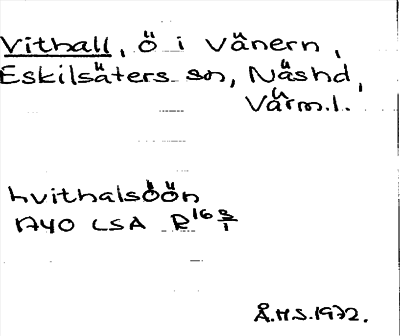 Vithall, ö i Vänern,
Eskilsäters sn, Näshd,
Värml.
hvithalsöön
1740 LSA R16 3/1
Å.H.S.1972.